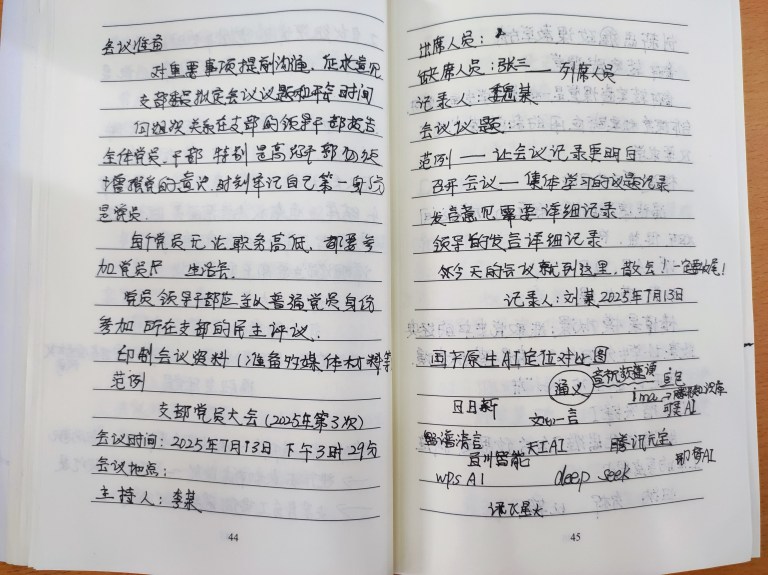 会议准备
对重要事项提前沟通，征求意见
支部委员拟定会议议题和开会时间
向组织关系在支部的领导干部报告
全体党员、干部 特别是高级干部必须
增强党的意识，时刻牢记自己第一身份
是党员.
每个党员无论职务高低，都要参
加党员 生活会.
党员领导干部应当以普通党员身份
参加所在支部的民主评议.
印制会议资料（准备多媒体材料等
范例
支部党员大会（2025年第3次）
会议时间：2025年7月13日 下午3时29分
会议地点：
主持人：李某
44
出席人员：
缺席人员：张三—— 列席人员
记录人：李某某
会议议题：
范例——让会议记录更明白
召开会议——集体学习的议题记录
发言意见需要详细记录
领导的发言详细记录
今天的会议就到这里，散会！一定要收尾！
记录人：刘某 2025年7月13日
国产原生AI定位对比图
通义
豆包
ima→腾讯知识库
日日新
文心一言
可灵AI
智谱清言
天工AI
腾讯元宝
百川智能
即梦AI
WPS AI
deep seek
讯飞星火
45